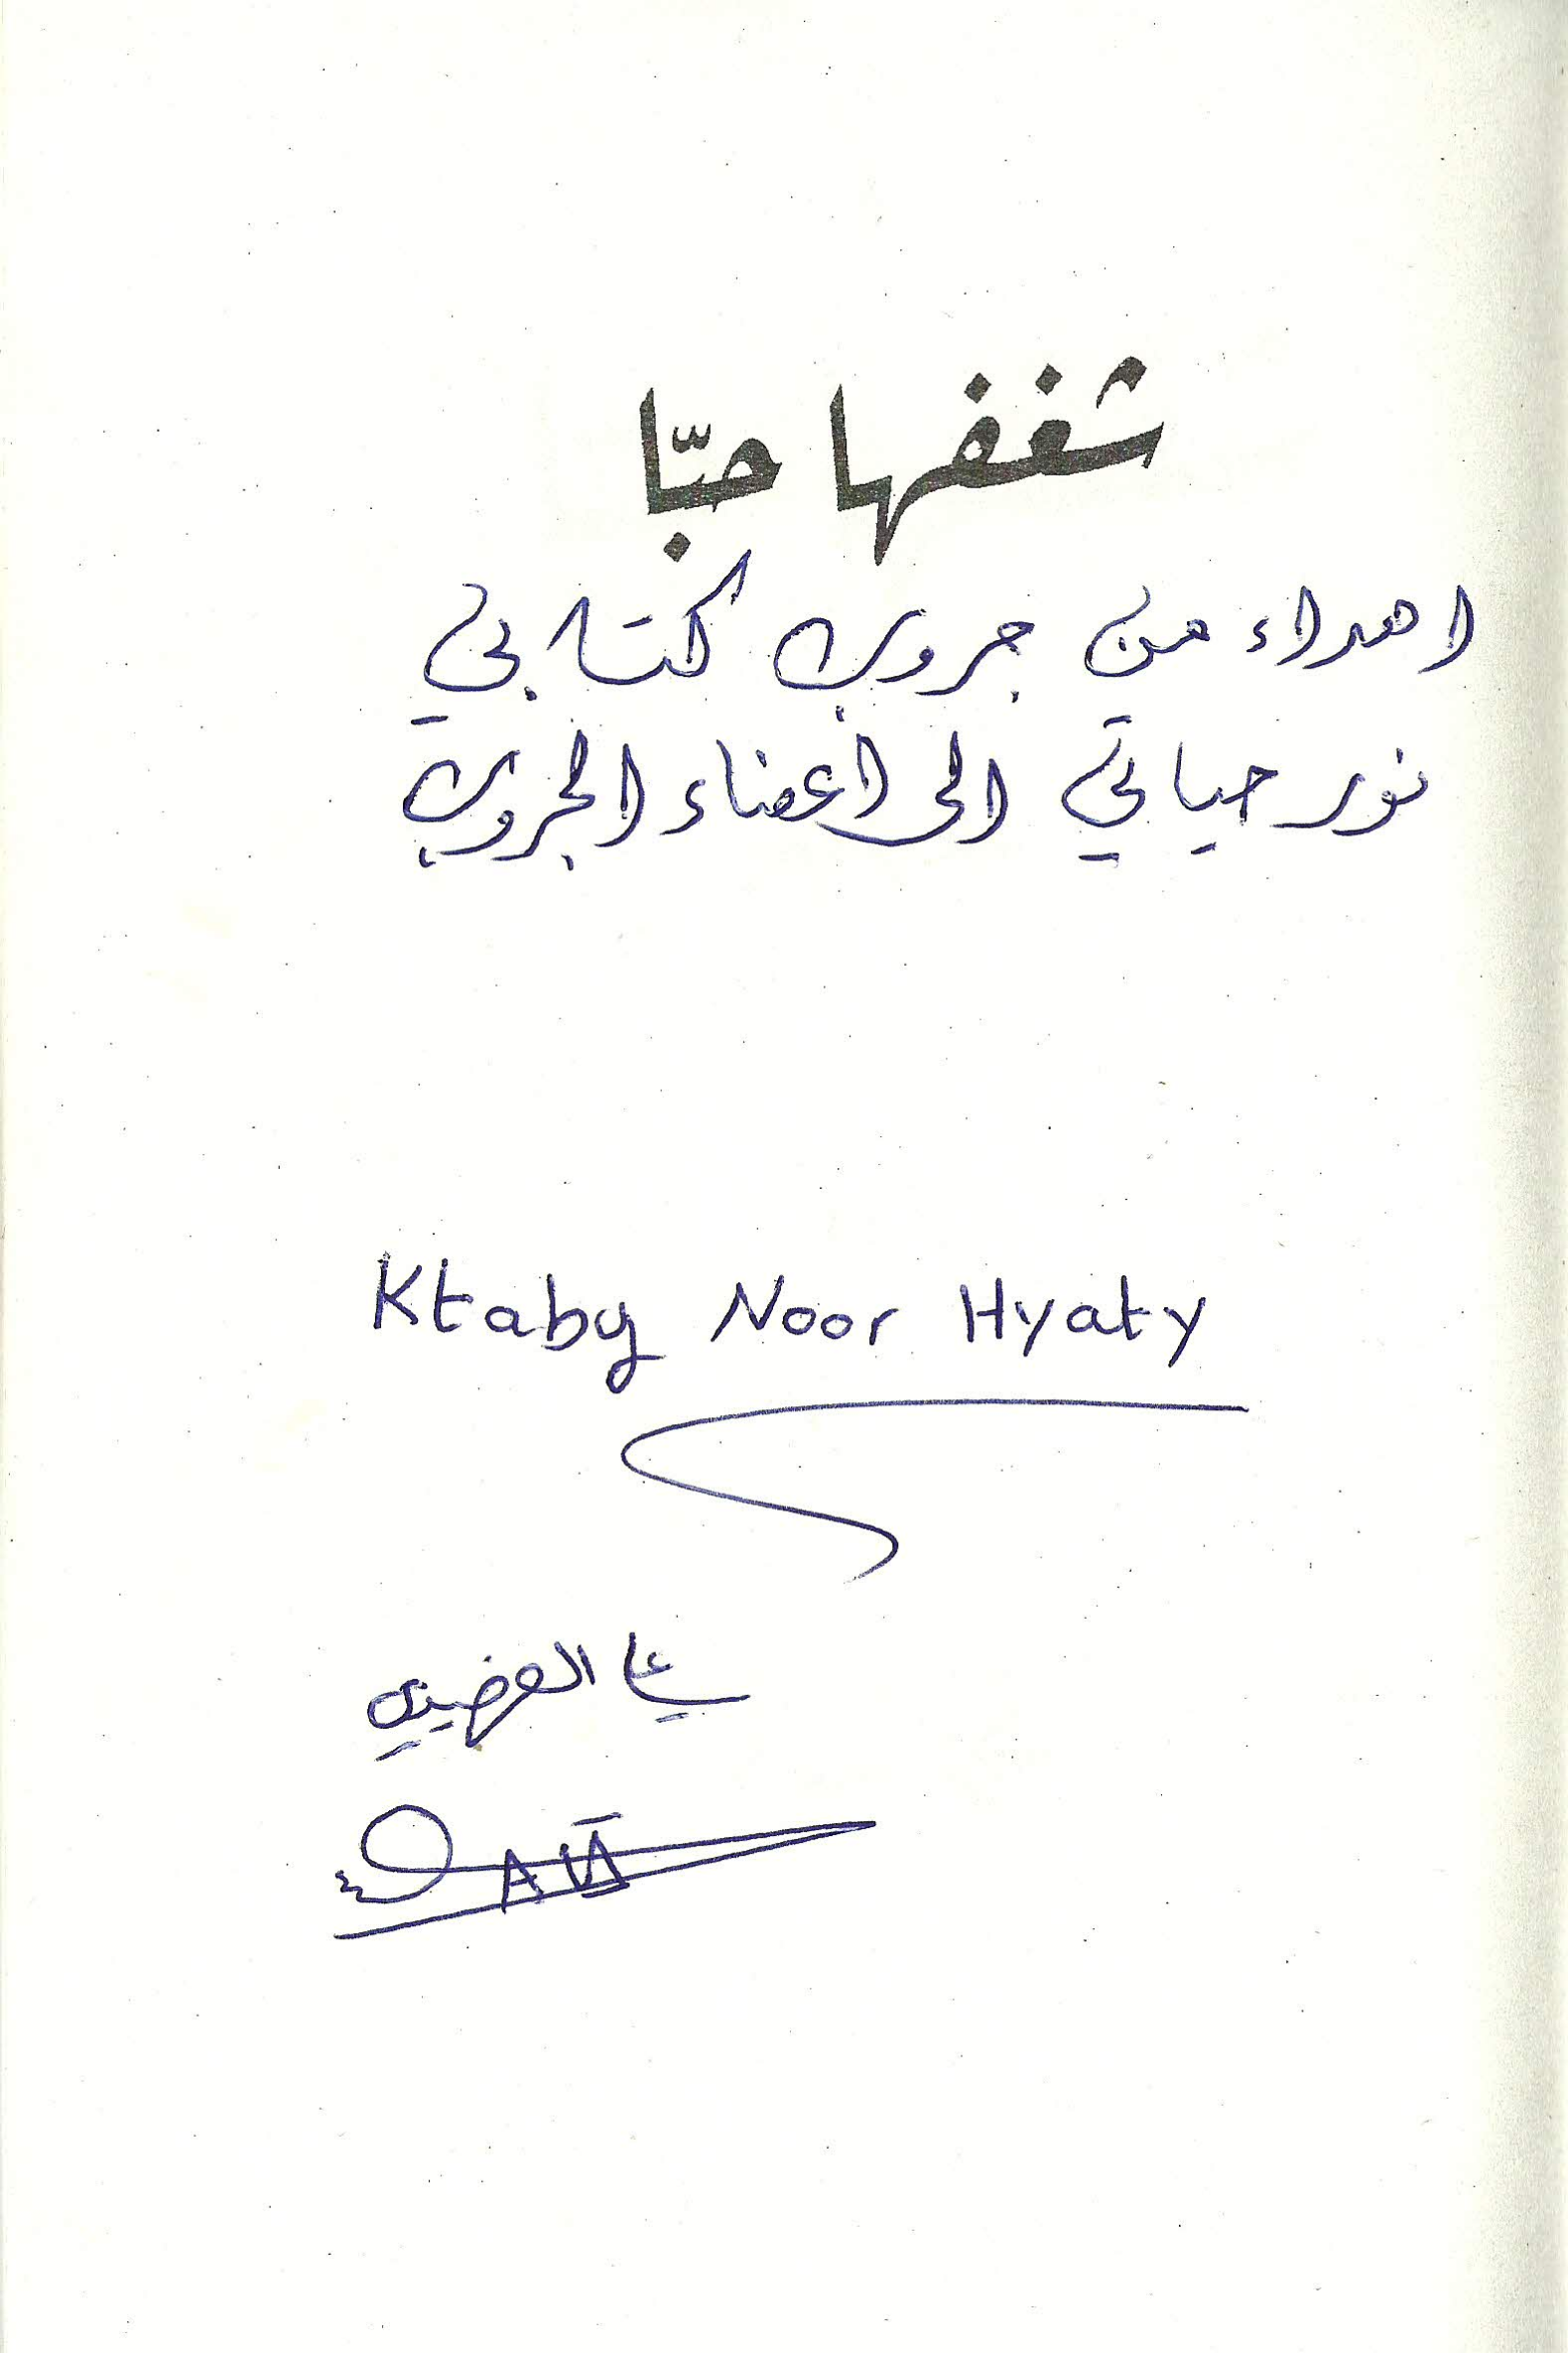 شغفها حبّا
اهداء من جروب كتابي
نور حياتي الى أعضاء الجروب
Ktaby Noor Hyaty
علي